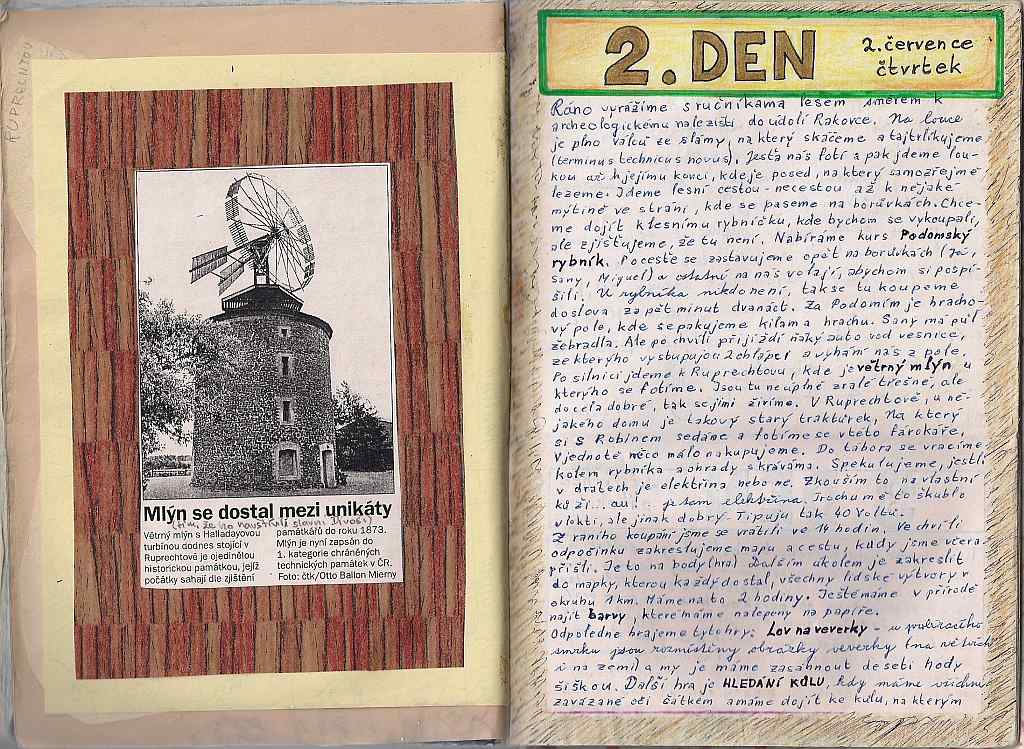 RUPRECHTOV
Mlýn se dostal mezi unikáty
(tím, že ho navštívili slavní Divoši)
Větrný mlýn s Halladayovou
turbínou dodnes stojící v
Ruprechtově je ojedinělou
historickou památkou, jejíž
počátky sahají dle zjištění
památkářů do roku 1873.
Mlýn je nyní zapsán do
1. kategorie chráněných
technických památek v ČR.
Foto: čtk/Otto Ballon Mierny
2. DEN
2. července
čtvrtek
Ráno vyrážíme s ručníkama lesem směrem k
archeologickému nalezišti do údolí Rakovce. Na louce
je plno válců ze slámy, na který skáčeme a tajtrlíkujeme
(terminus technicus novus). Jesťa nás fotí a pak jdeme lou-
kou až k jejímu konci, kde je posed, na který samozřejmě
lezeme. Jdeme lesní cestou - necestou až k nějaké
mýtině ve stráni, kde se paseme na borůvkách. Chce-
me dojít k lesnímu rybníčku, kde bychom se vykoupali,
ale zjišťujeme, že tu není. Nabíráme kurs Podomský
rybník. Po cestě se zastavujeme opět na borůvkách (já,
Sany, Miguel) a ostatní na nás volají, abychom si pospí-
šili. U rybníka nikdo není, takže tu koupeme
doslova za pět minut dvanáct. Za Podomím je hracho-
vý pole, kde se pakujeme kilama hrachu. Sany má půl
žebradla. Ale po chvíli přijíždí ňáký auto od vesnice,
ze kterýho vystupujou 2 chlápci a vyhání nás z pole.
Po silnici jdeme k Ruprechtovu, kde je větrný mlýn, u
kterýho se fotíme. Jsou tu neúplně zralé třešně, ale
docela dobré, tak se jimi živíme. V Ruprechtově, u ně-
jakého domu je takový starý traktůrek, Na který
si s Robinem sedáme a fotíme se v této fárokáře,
V jednotě něco málo nakupujeme. Do tábora se vracíme
kolem rybníka a ohrady s kráváma. Spekulujeme, jestli
v drátech je elektřina nebo ne. Zkouším to na vlastní
kůži... au!... je tam elektrina. Trochu mě to škublo
v lokti, ale jinak dobrý. Tipuju tak 40 Voltů.
Z raního koupaní jsme se vrátili ve 14 hodin. Ve chvíli
odpočinku zakreslujeme mapu a cestu, kudy jsme včera
přišli. Je to na body (hra) Dalším úkolem je zakreslit
do mapky, kterou každý dostal, všechny lidské výtvory v
okruhu 1 km. Máme na to 2 hodiny. Ještě máme v přírodě
najít barvy, které máme nalepený na papíře.
Odpoledne hrajeme tyto hry: Lov na veverky - u
smrku jsou rozmístěny obrázky veverky (na větvích
i na zemi) a my je máme zasáhnout deseti hody
šiškou. Další hra je HLEDÁNÍ KŮLU, kdy máme všichni
zavázané oči šátkem a máme dojít ke kůlu, na kterým